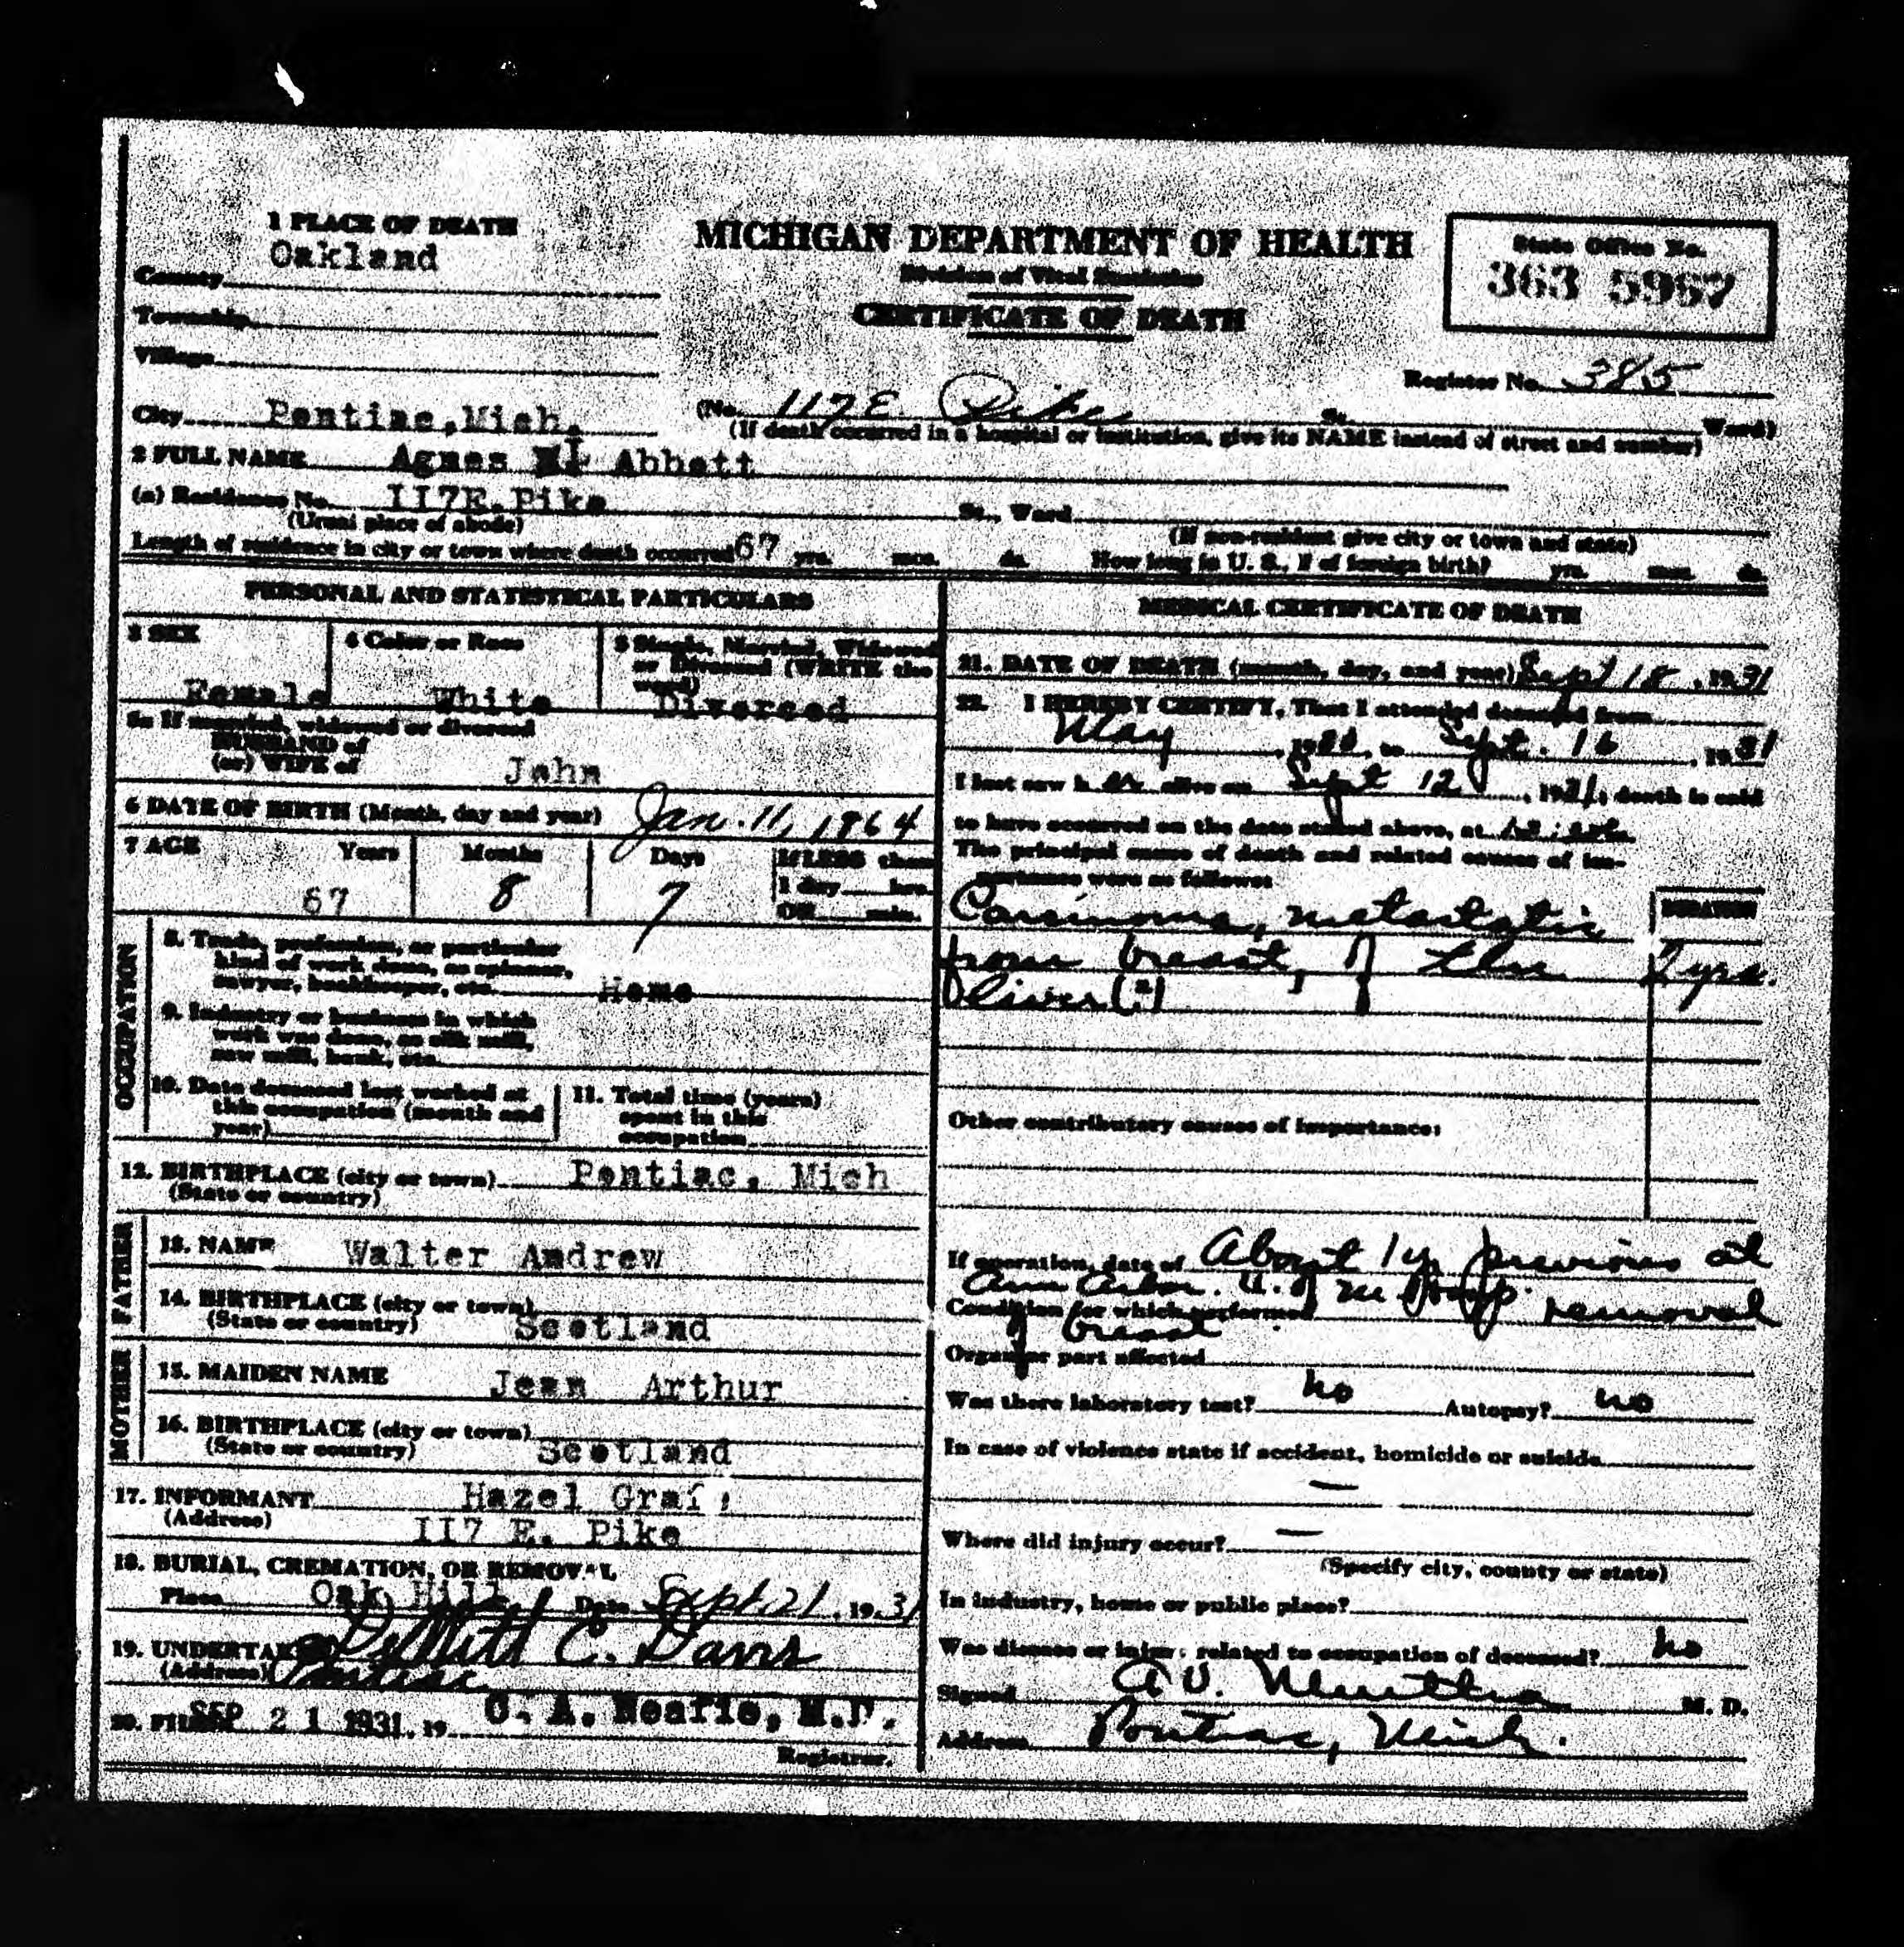 1 PLACE OF DEATH
MICHIGAN DEPARTMENT OF HEALTH
Division of Vital Statistics
CERTIFICATE OF DEATH
State Office No.
363 5967
County Oakland
Township
Village
Register No. 385
City Pontiac, Mich. (No. 117 E. Pike St. Ward)
(If death occurred in a hospital or institution, give its NAME instead of street and number)
2 FULL NAME Agnes Abbott
(a) Residence No. 117 E. Pike St., Ward
(Usual place of abode) (If non-resident give city or town and state)
Length of residence in city or town where death occurred 67 yrs. mos. ds. How long in U. S., if of foreign birth? yrs. mos. ds.
PERSONAL AND STATISTICAL PARTICULARS
3 SEX
Female
4 Color or Race
White
5 Single, Married, Widowed
or Divorced (WRITE the
word)
Divorced
5a If married, widowed or divorced
HUSBAND of
(or) WIFE of John
6 DATE OF BIRTH (Month, day and year) Jan. 11, 1864
7 AGE Years Months Days If LESS than
1 day hrs.
OR min.
67 8 7
OCCUPATION
8. Trade, profession, or particular
kind of work done, as spinner,
sawyer, bookkeeper, etc. Home
9. Industry or business in which
work was done, as silk mill,
saw mill, bank, etc.
10. Date deceased last worked at
this occupation (month and
year)
11. Total time (years)
spent in this
occupation
12. BIRTHPLACE (city or town) Pontiac, Mich
(State or country)
FATHER
13. NAME Walter Andrew
14. BIRTHPLACE (city or town)
(State or country) Scotland
MOTHER
15. MAIDEN NAME Jean Arthur
16. BIRTHPLACE (city or town)
(State or country) Scotland
17. INFORMANT Hazel Graf
(Address) 117 E. Pike
18. BURIAL, CREMATION, OR REMOVAL
Place Oak Hill Date Sept 21, 1931
19. UNDERTAKER DeWitt C. Davis
(Address) Pontiac
20. FILED SEP 21 1931, 19 C. A. Neafie, M.D.
Registrar.
MEDICAL CERTIFICATE OF DEATH
21. DATE OF DEATH (month, day, and year) Sept 18, 1931
22. I HEREBY CERTIFY, That I attended deceased from
May , 19 , to Sept. 16, 1931
I last saw her alive on Sept 12, 1931, death is said
to have occurred on the date stated above, at
The principal cause of death and related causes of im-
portance were as follows:
DURATION
Carcinoma, metastatic
from breast, of 2 yrs.
liver (?)
Other contributory causes of importance:
If operation, date of About 1 yr previous at
Ann Arbor. U. of M Hosp. removal
Condition for which performed
of breast
Organ or part affected
Was there laboratory test? no Autopsy? no
In case of violence state if accident, homicide or suicide
—
Where did injury occur? —
(Specify city, county or state)
In industry, home or public place?
Was disease or injury related to occupation of deceased? no
Signed M. D.
Address Pontiac, Mich.